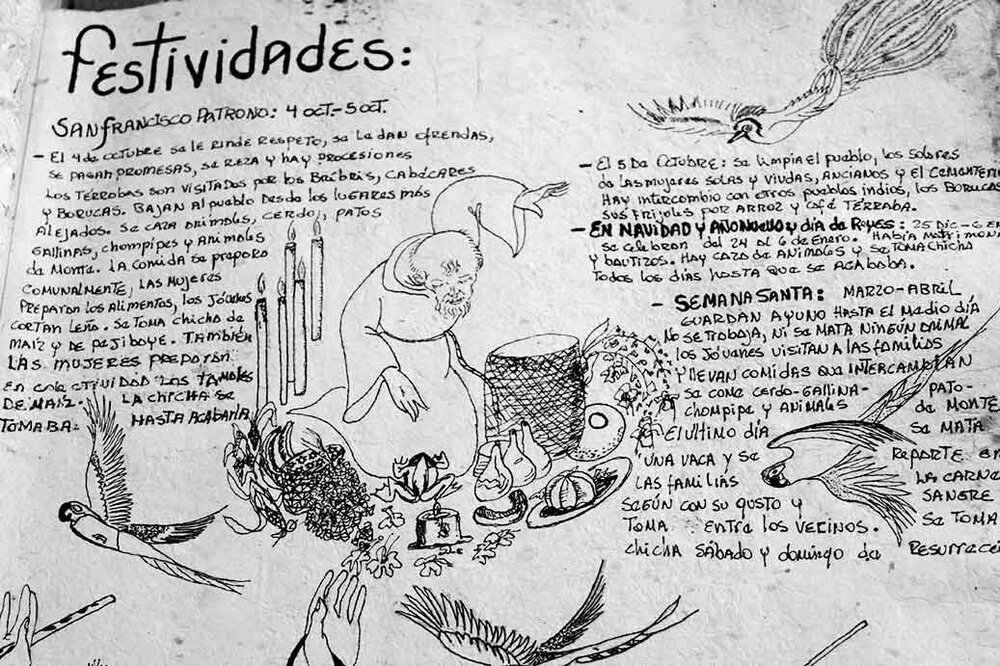 Festividades:
SAN FRANCISCO PATRONO: 4 OCT-5 OCT.
- El 4 de octubre se le rinde respeto, se la dan ofrendas,
se pagan promesas, se reza y hay procesiones
Los Térrobas son visitados por los Bribris, Cabécares
y Borucas. Bajan al pueblo desde los lugares más
alejados. Se caza animales, cerdo, patos
gallinas, chompipes y animales
de Monte. La comida se preparo
comunalmente, las mujeres
preparan los alimentos, los jóvenes
cortan leña. Se toma chicha de
maíz y de pejiboye. También
las mujeres preparan
en esta ctividad los tamales
de maíz. La chicha se
tomaba hasta acabarla
- El 5 de octubre: se limpia el pueblo, los solares
de las mujeres solas y viudas, ancianos y el cementerio
Hay intercambio con otros pueblos indios, los Borucas
sus frijoles por arroz y café Térraba.
- EN NAVIDAD Y AÑO NUEVO y día de Reyes: 25 Dic-6 En
se celebran del 24 al 6 de Enero. Había matrimoni
y bautizos. Hay caza de animales y se toma chicha
todos los días hasta que se acababa.
- SEMANA SANTA: MARZO-ABRIL
Guardan ayuno hasta el medio día
No se trabaja, ni se mata ningún animal
los jóvenes visitan a las familias
y llevan comidas que intercambian
se come cerdo-gallina- pato-
chompipe y animales de monte
El último día se mata
una vaca y se reparte en
las familias la carne
según con su gusto y sangre
toma entre los vecinos. se toma
chicha sábado y domingo de Resurrecci